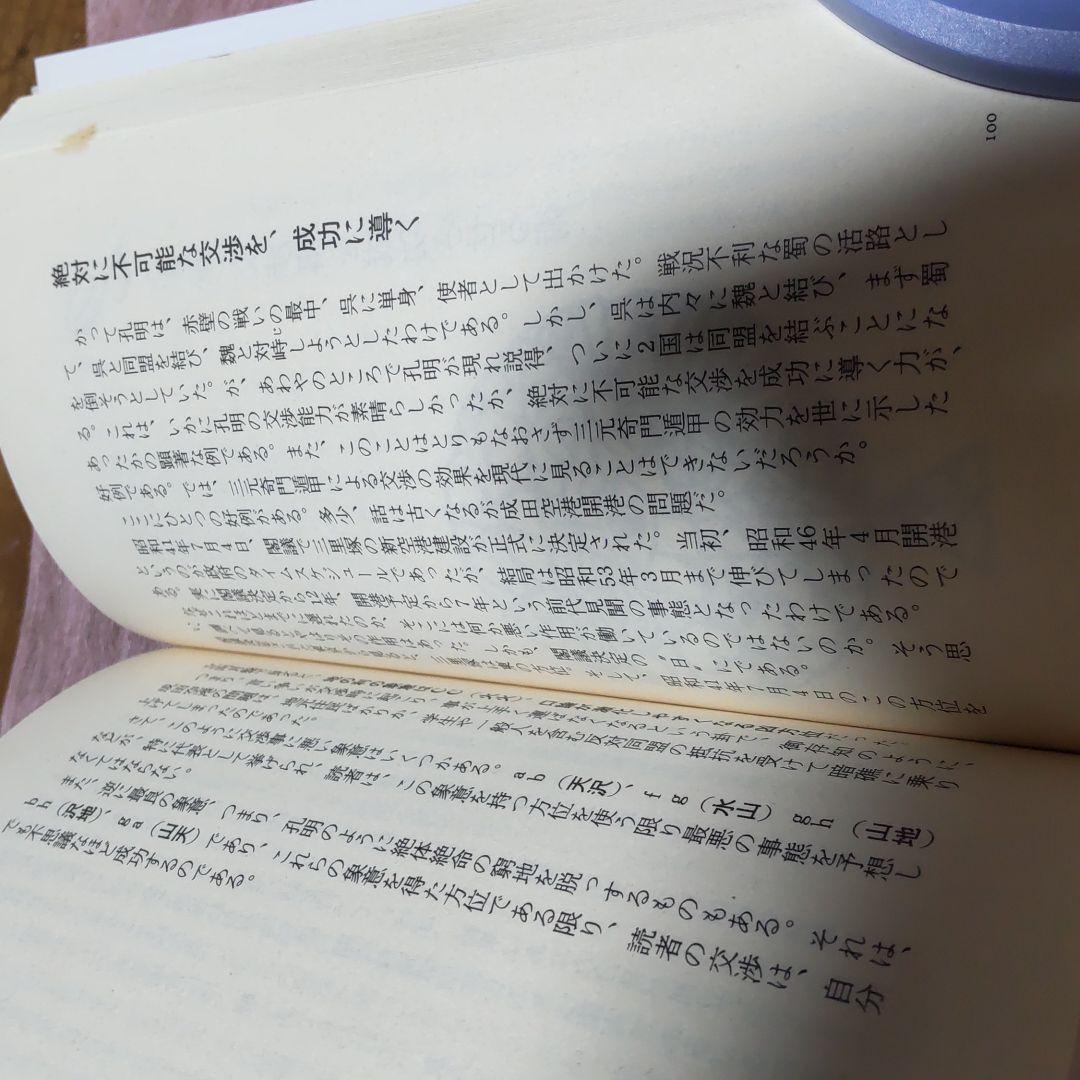 100
絶対に不可能な交渉を、成功に導く
かつて孔明は、赤壁の戦いの最中、呉に単身、使者として出かけた。戦況不利な蜀の活路とし
て、呉と同盟を結び、魏と対峙しようとしたわけである。しかし、呉は内々に魏と結び、まず蜀
を倒そうとしていた。が、あわやのところで孔明が現れ説得、ついに2国は同盟を結ぶことにな
る。これは、いかに孔明の交渉能力が素晴らしかったか、絶対に不可能な交渉を成功に導く力が、
あったかの顕著な例である。また、このことはとりもなおさず三元奇門遁甲の効力を世に示した
好例である。では、三元奇門遁甲による交渉の効果を現代に見ることはできないだろうか。
ここにひとつの好例がある。多少、話は古くなるが成田空港開港の問題だ。
昭和41年7月4日、閣議で三里塚の新空港建設が正式に決定された。当初、昭和46年4月開港
というのが政府のタイムスケジュールであったが、結局は昭和53年3月まで伸びてしまったので
ある。実に閣議決定から12年、開港予定から7年という前代見聞の事態となったわけである。
なぜこれほどまでに遅れたのか。そこには何か悪い作用が働いているのではないのか。そう思
い、調べて観るとやはりその作用はあった。しかも、閣議決定の〝日〟にである。
三里塚は東の方位。そして、昭和41年7月4日のこの方位を
つまり、苦し争いが交渉時に起こり、事が上手く運ばなくなるという訳で、御存知のように、
成田空港の問題は、地元住民ばかりか、学生や一般人を含む反対同盟の抵抗を受けて暗礁に乗り
上げてしまったのであった。
さて、このように交渉事に悪い象意はいくつかある。ab（天沢）、fg（水山）gh（山地）
などが、特に代表として挙げられ、読者は、この象意を持つ方位を使う限り最悪の事態を予想し
なくてはならない。
また、逆に最良の象意、つまり、孔明のように絶体絶命の窮地を脱つするものもある。それは、
bh（沢地）、ga（山天）であり、これらの象意を得た方位である限り、読者の交渉は、自分
でも不思議なほど成功するのである。